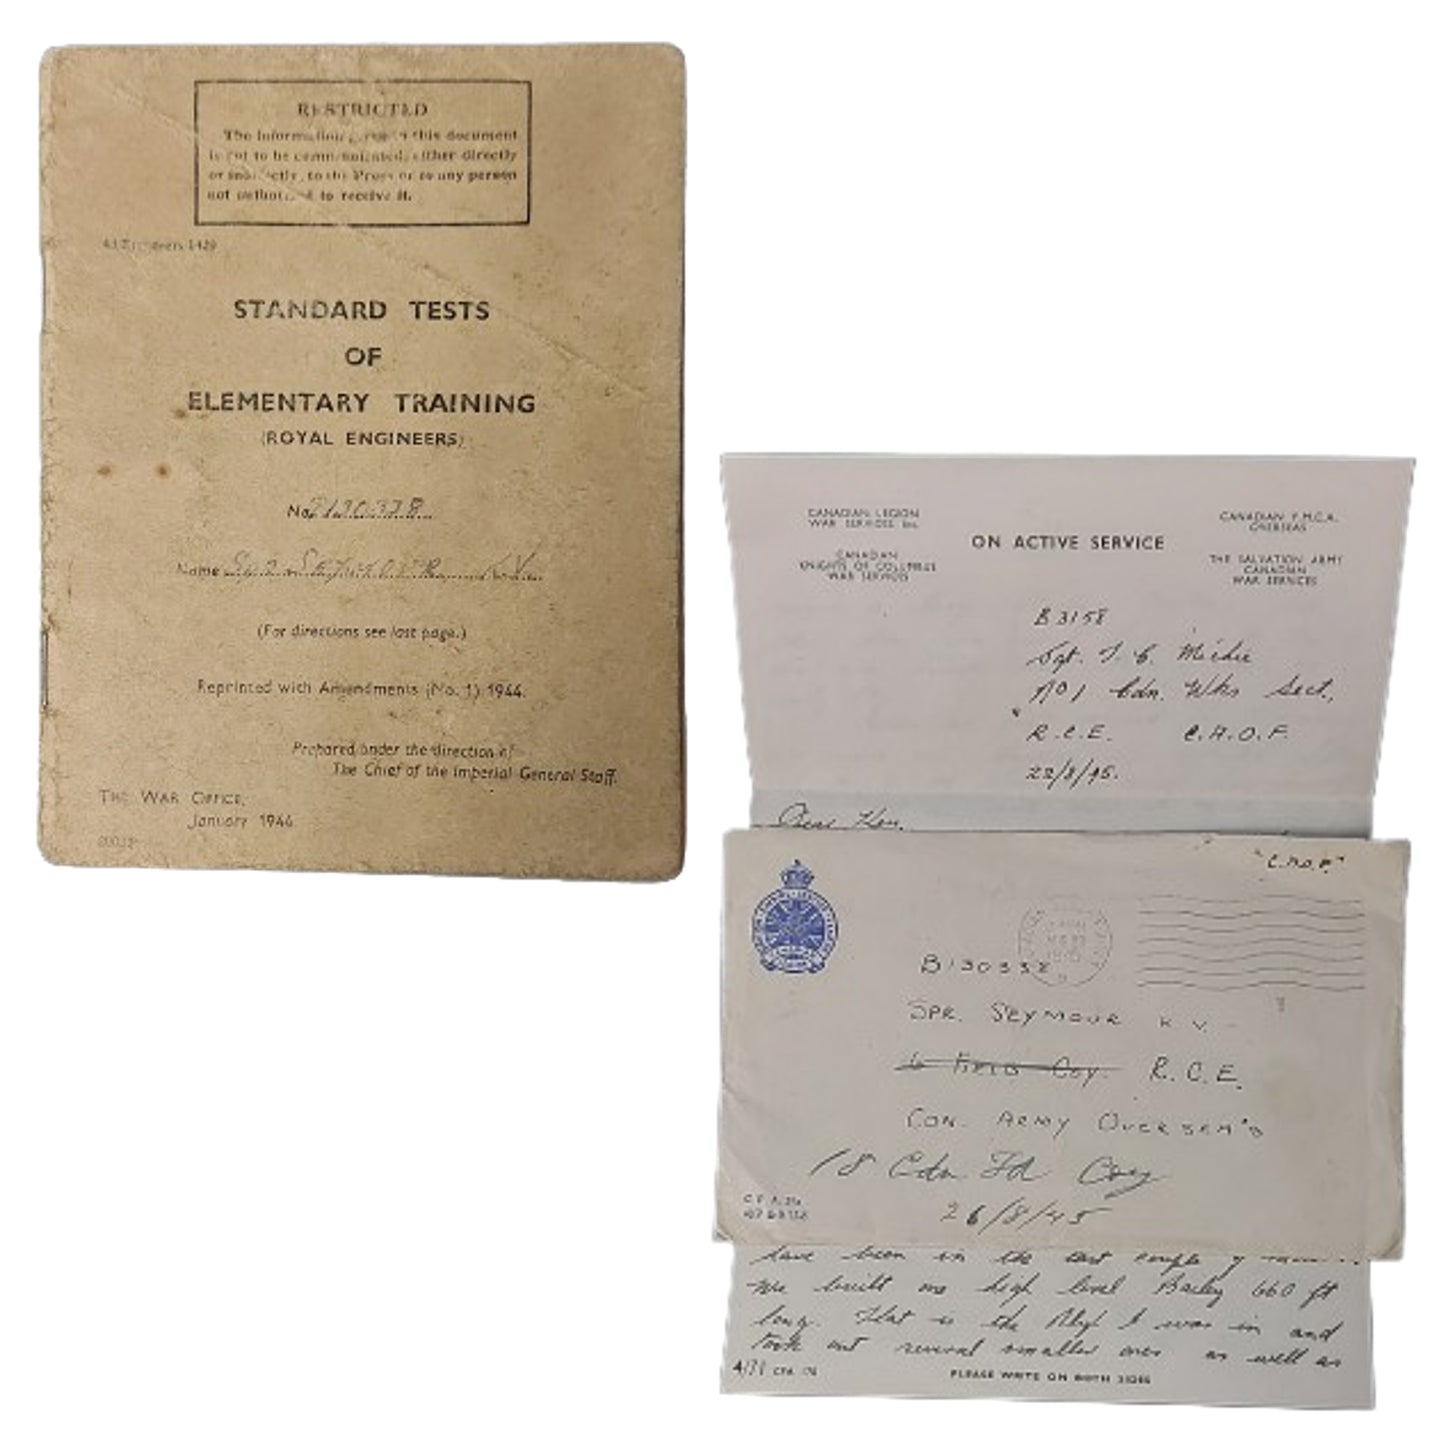 RESTRICTED
The information given in this document
is not to be communicated, either directly
or indirectly, to the Press or to any person
not authorized to receive it.
STANDARD TESTS
OF
ELEMENTARY TRAINING
(ROYAL ENGINEERS)
No.
Name SEYMOUR K.V.
(For directions see last page.)
Reprinted with Amendments (No. 1) 1944.
Prepared under the direction of
The Chief of the Imperial General Staff.
THE WAR OFFICE,
January 1944
CANADIAN LEGION
WAR SERVICES Inc.
CANADIAN
KNIGHTS OF COLUMBUS
WAR SERVICES
ON ACTIVE SERVICE
CANADIAN Y.M.C.A.
OVERSEAS
THE SALVATION ARMY
CANADIAN
WAR SERVICES
B 3158
Sgt. Michie
No 1 Cdn. Wks Sect.
R.C.E. C.A.O.F.
22/8/45.
Dear Ken,
"C.A.O.F."
B130338
SPR. SEYMOUR K V.
6 FIELD COY. R.C.E.
CDN. ARMY OVERSEA'S
18 Cdn Fd Coy
26/8/45
have been in the last couple of
We built one high level Bailey 660 ft
long. That is the I was in and
took out several smaller ones as well as
PLEASE WRITE ON BOTH SIDES